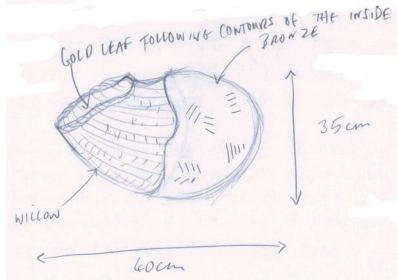 GOLD LEAF FOLLOWING CONTOURS OF THE INSIDE
BRONZE
35cm
WILLOW
60cm